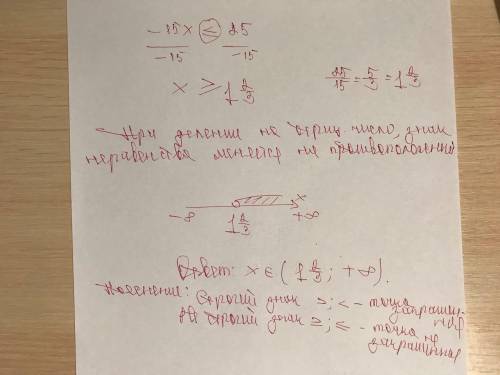 -15x ≤ 25
-15 -15
x ≥ 1 2/3
25/15 = 5/3 = 1 2/3
При делении на отриц. число, знак
неравенства меняется на противоположный
x
-∞ 1 2/3 +∞
Ответ: x ∈ (1 2/3; +∞).
Пояснение: Строгий знак >; < - точка
закрашин
строгий знак ≥; ≤ - точка не
закрашинная